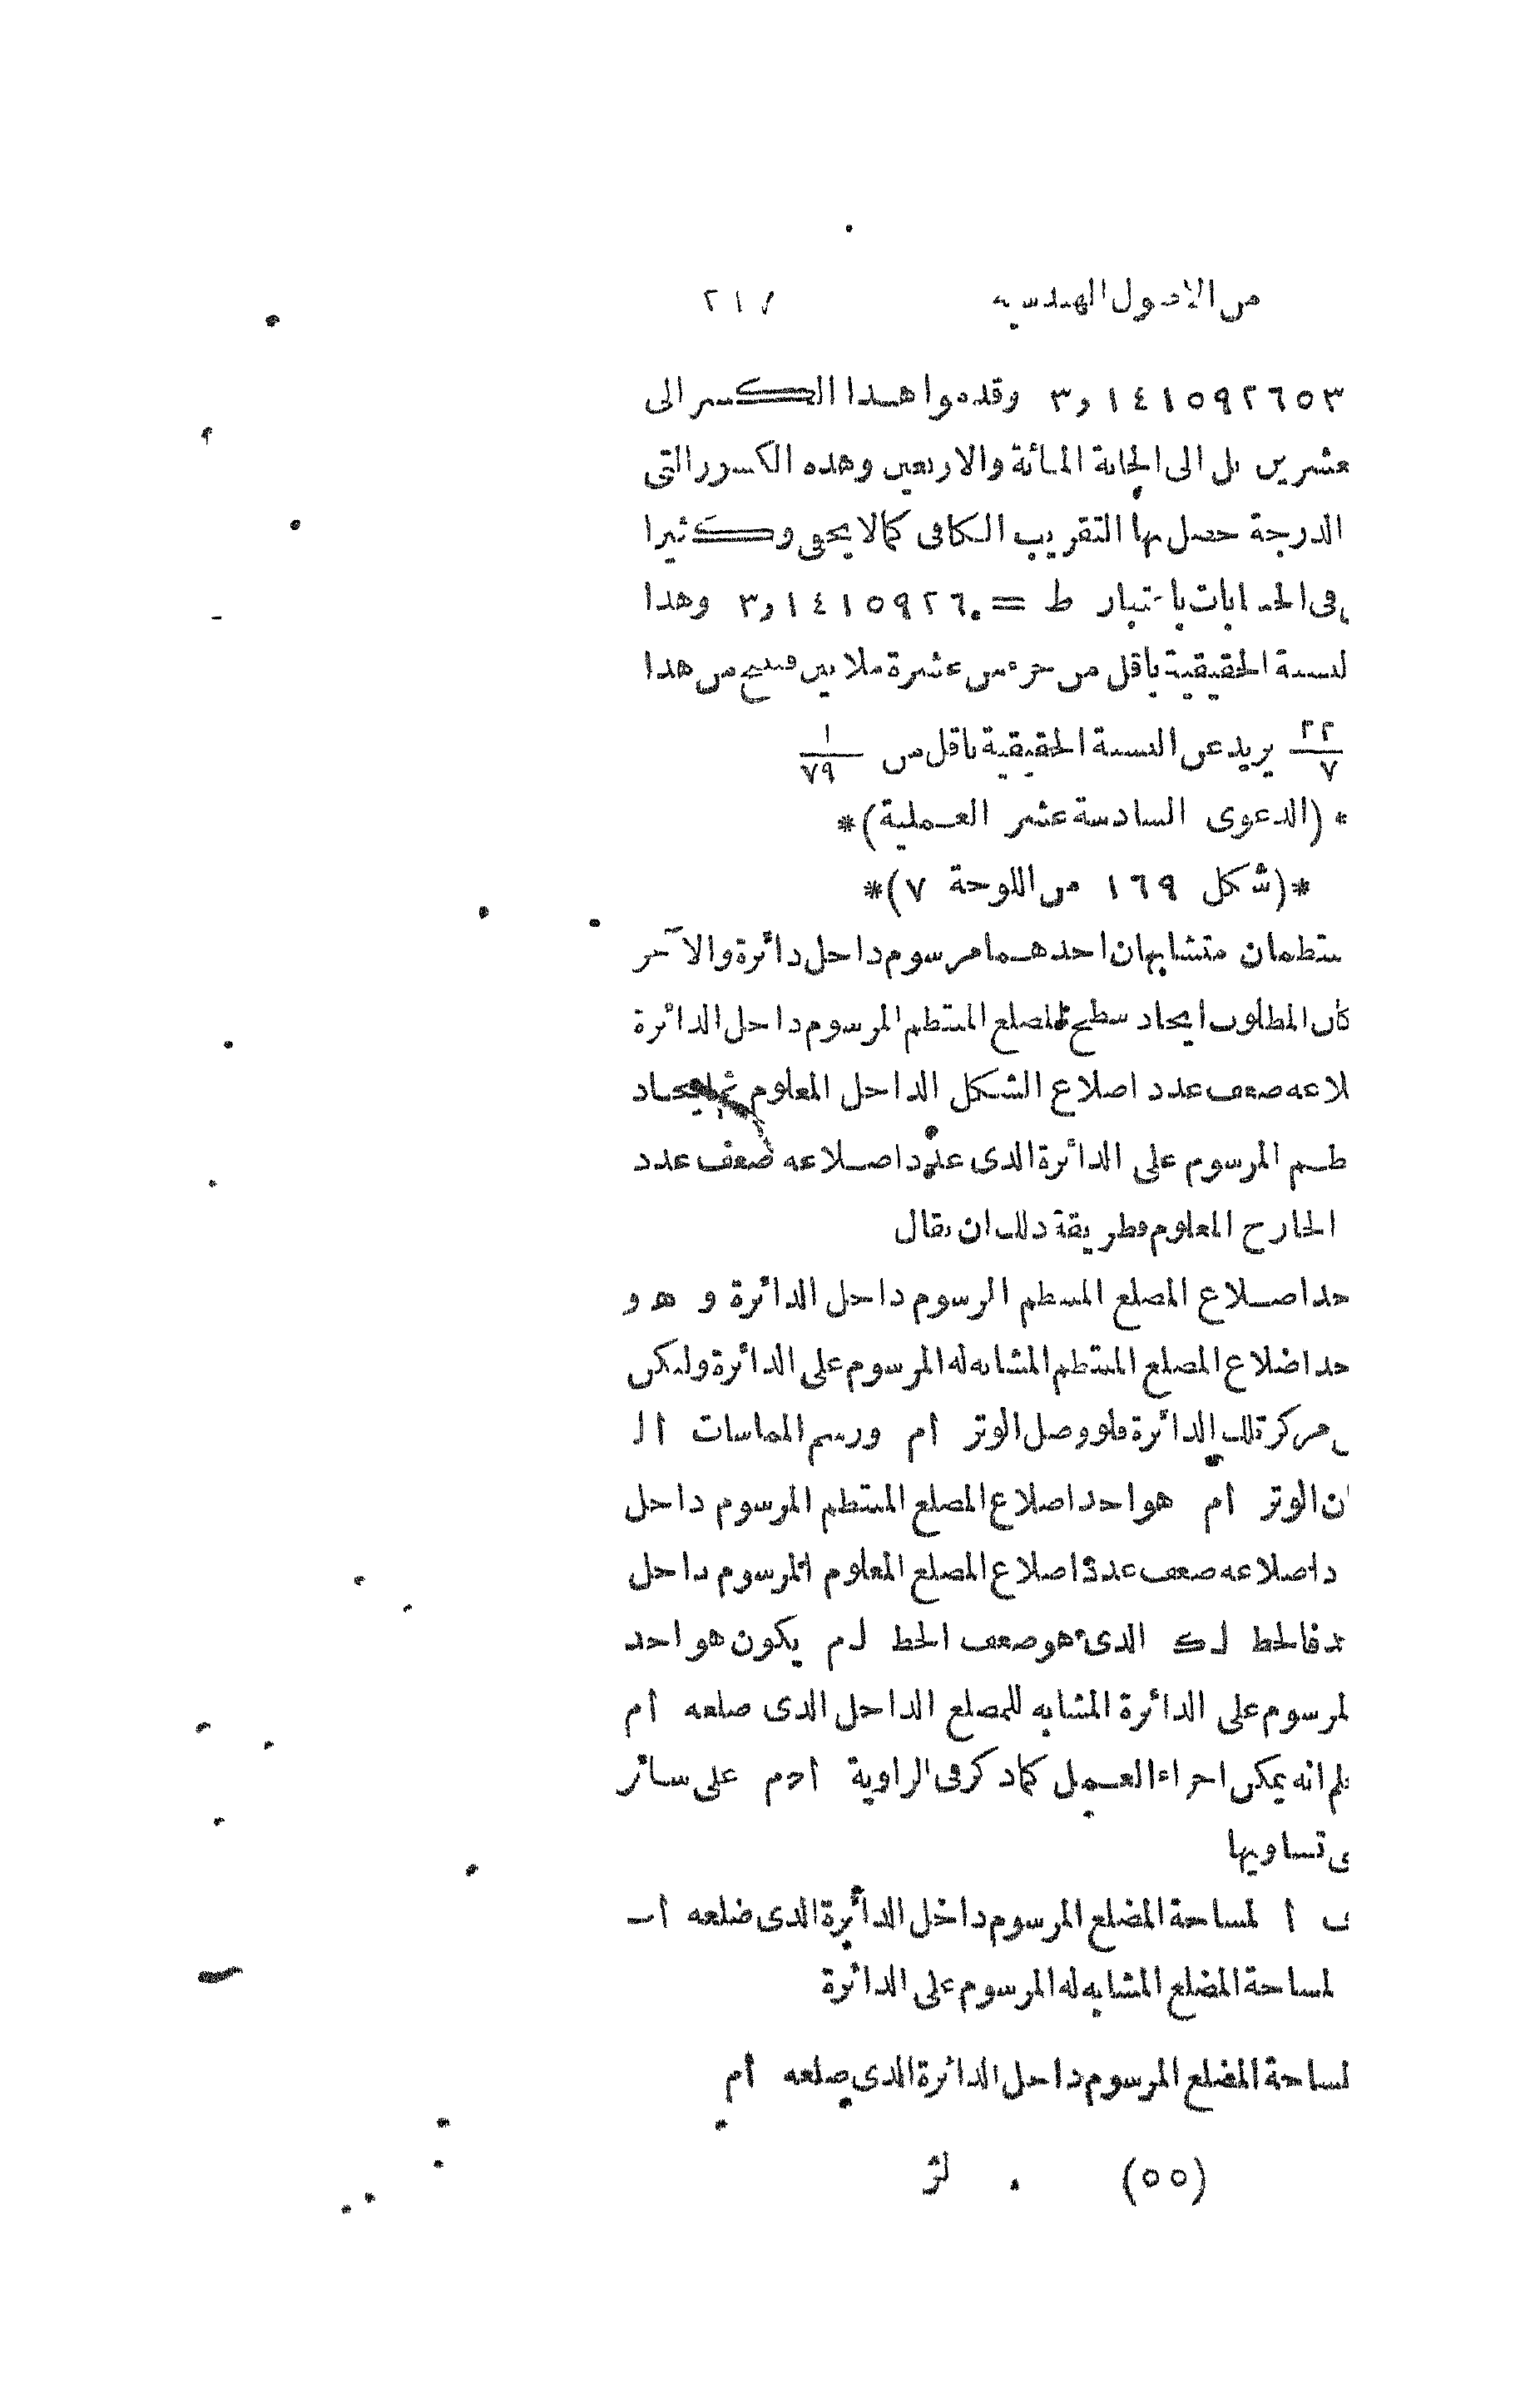 من الاصول الهندسيه ٢١٧
٣,١٤١٥٩٢٦٥٣ وقدموا هـذا الكـسر الى
عشرين بل الى الخانة المائة والاربعين وهذه الكسور التى
الدرجة حصل بها التقريب الكافى كمالا يخفى وكثيرا
فى الحسابات باعتبار ط = ٣,١٤١٥٩٢٦ وهذا
لنسبة الحقيقية باقل من جزء من عشرة ملايين فينتج من هذا
٢٢/٧ يزيد عن النسبة الحقيقية باقل من ١/٧٩
*(الدعوى السادسة عشر العـملية)*
*(شكل ١٦٩ من اللوحة ٧)*
منتظمان متشابهان احدهـما مرسوم داخل دائرة والآخر
كان المطلوب ايجاد سطح المضلع المنتظم المرسوم داخل الدائرة
لاعه ضعف عدد اضلاع الشكل الداخل المعلوم ثم ايجاد
ظـم المرسوم على الدائرة الذى عدد اضـلاعه ضعف عدد
الخارج المعلوم وطريقة ذلك ان يقال
حد اضـلاع المضلع المنتظم المرسوم داخل الدائرة و هـ و
حد اضلاع المضلع المنتظم المشابه له المرسوم على الدائرة وليكن
مركز تلك الدائرة فلو وصل الوتر أم ورسم المماسات أ ل
ان الوتر أم هو احد اضلاع المضلع المنتظم المرسوم داخل
د اضلاعه ضعف عدد اضلاع المضلع المعلوم المرسوم داخل
فالخط ل ك الذى هو ضعف الخط ل م يكون هو احد
لمرسوم على الدائرة المشابه للمضلع الداخل الذى ضلعه أم
لم انه يمكن اجراء العـمل كما ذكر فى الزاوية أ ح م على سائر
ى تساويها
أ لمساحة المضلع المرسوم داخل الدائرة الذى ضلعه أ ب
لمساحة المضلع المشابه له المرسوم على الدائرة
لمساحة المضلع المرسوم داخل الدائرة الذى ضلعه أم
(٥٥) لژ